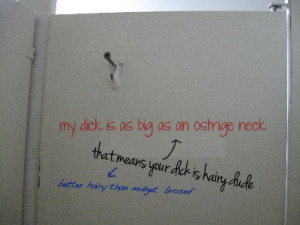 my dick is as big as an ostrige neck
that means your dick is hairy dude
better hairy than midget